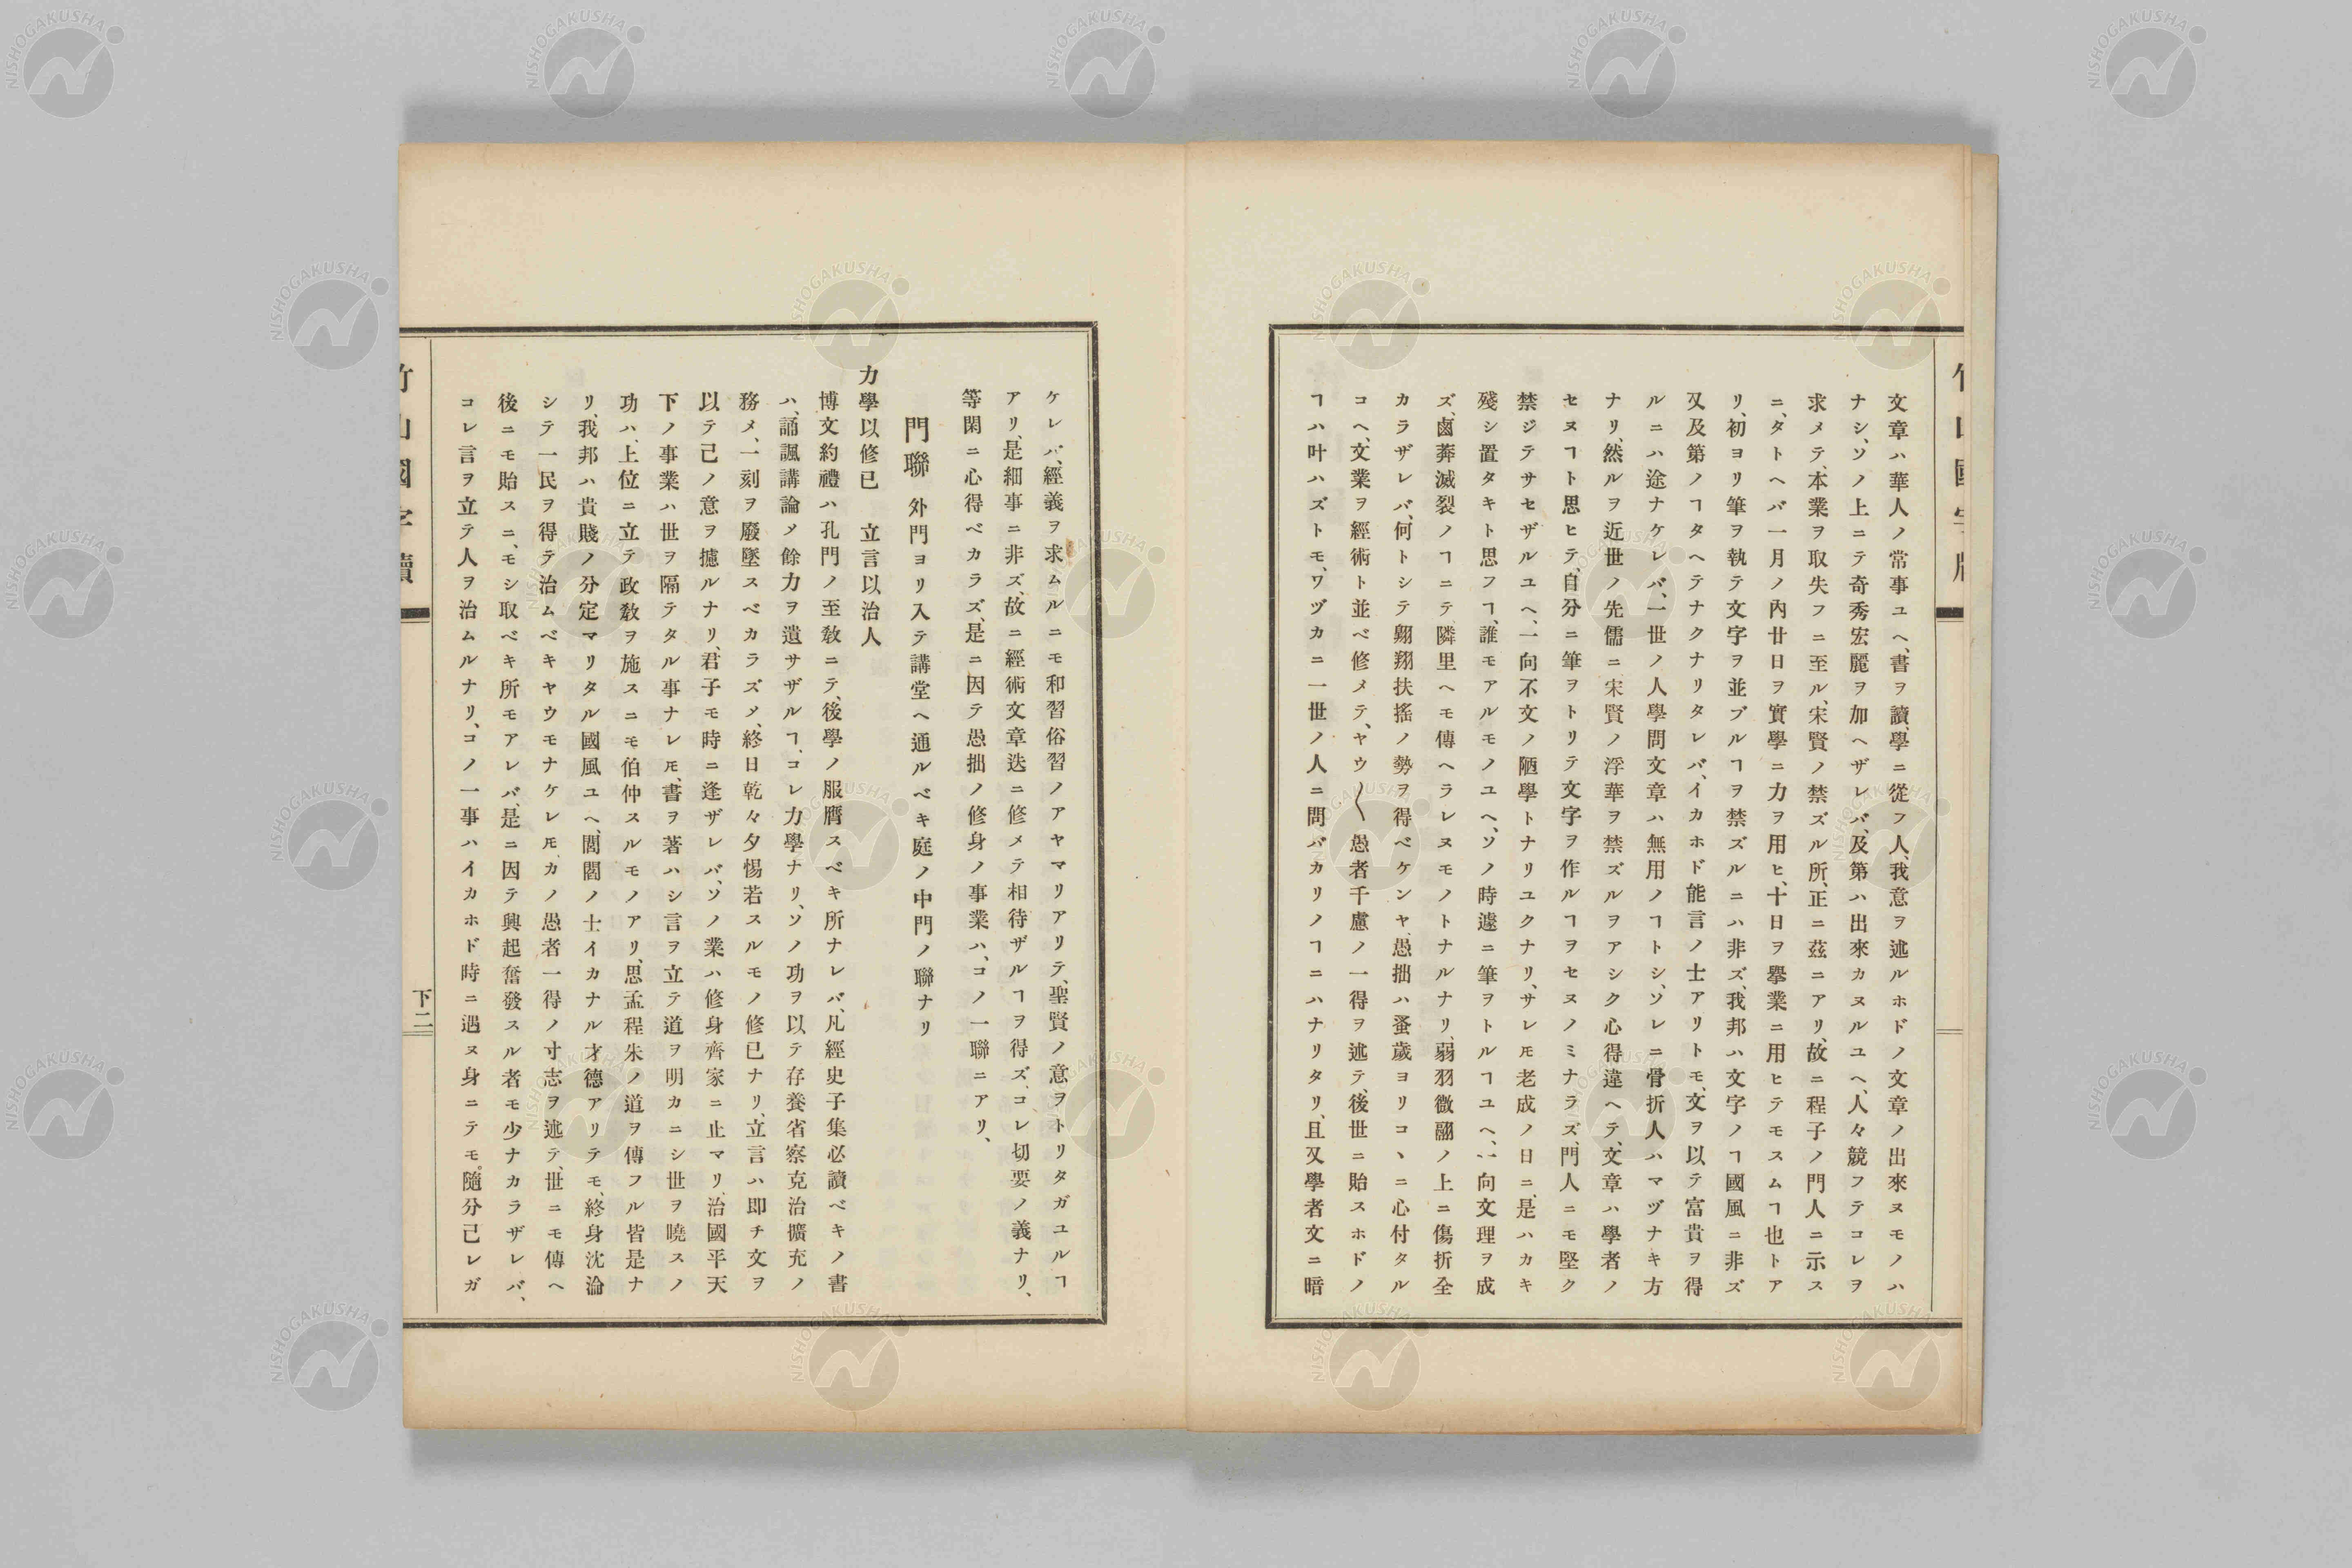 文章ハ華人ノ常事ユヘ、書ヲ讀、學ニ從フ人、我意ヲ述ルホドノ文章ノ出來ヌモノハ
ナシ、ソノ上ニテ奇秀宏麗ヲ加ヘザレバ、及第ハ出來カヌルユヘ、人々競フテコレヲ
求メテ、本業ヲ取失フニ至ル、宋賢ノ禁ズル所、正ニ茲ニアリ、故ニ程子ノ門人ニ示ス
ニ、タトヘバ一月ノ內廿日ヲ實學ニ力ヲ用ヒ、十日ヲ擧業ニ用ヒテモスムヿ也トア
リ、初ヨリ筆ヲ執テ文字ヲ並ブルヿヲ禁ズルニハ非ズ、我邦ハ文字ノヿ國風ニ非ズ
又及第ノヿタヘテナクナリタレバ、イカホド能言ノ士アリトモ、文ヲ以テ富貴ヲ得
ルニハ途ナケレバ、一世ノ人學問文章ハ無用ノヿトシ、ソレニ骨折人ハマヅナキ方
ナリ、然ルヲ近世ノ先儒ニ宋賢ノ浮華ヲ禁ズルヲアシク心得違ヘテ、文章ハ學者ノ
セヌヿト思ヒテ、自分ニ筆ヲトリテ文字ヲ作ルヿヲセヌノミナラズ、門人ニモ堅ク
禁ジテサセザルユヘ、一向不文ノ陋學トナリユクナリ、サレ𪜈老成ノ日ニ、是ハカキ
殘シ置タキト思フヿ、誰モアルモノユヘ、ソノ時遽ニ筆ヲトルヿユヘ、一向文理ヲ成
ズ、鹵莽滅裂ノヿニテ、隣里ヘモ傳ヘラレヌモノトナルナリ、弱羽微翮ノ上ニ傷折全
カラザレバ、何トシテ翺翔扶搖ノ勢ヲ得ベケンヤ、愚拙ハ蚤歲ヨリコヽニ心付タル
コヘ、文業ヲ經術ト並ベ修メテ、ヤウ〱愚者千慮ノ一得ヲ述テ、後世ニ貽スホドノ
ヿハ叶ハズトモ、ワヅカニ一世ノ人ニ問バカリノヿニハナリタリ、且又學者文ニ暗
ケレバ、經義ヲ求ムルニモ和習俗習ノアヤマリアリテ、聖賢ノ意ヲトリタガユルヿ
アリ、是細事ニ非ズ、故ニ經術文章迭ニ修メテ相待ザルヿヲ得ズ、コレ切要ノ義ナリ、
等閑ニ心得ベカラズ、是ニ因テ愚拙ノ修身ノ事業ハ、コノ一聯ニアリ、
門聯 外門ヨリ入テ講堂ヘ通ルベキ庭ノ中門ノ聯ナリ
力學以修已 立言以治人
博文約禮ハ孔門ノ至敎ニテ、後學ノ服膺スベキ所ナレバ、凡經史子集必讀ベキノ書
ハ、誦諷講論〆餘力ヲ遺サザルヿ、コレ力學ナリ、ソノ功ヲ以テ存養省察克治擴充ノ
務メ、一刻ヲ廢墜スベカラズ〆、終日乾々夕惕若スルモノ修已ナリ、立言ハ即チ文ヲ
以テ己ノ意ヲ攄ルナリ、君子モ時ニ逢ザレバ、ソノ業ハ修身齊家ニ止マリ、治國平天
下ノ事業ハ世ヲ隔テタル事ナレ𪜈、書ヲ著ハシ言ヲ立テ道ヲ明カニシ世ヲ曉スノ
功ハ、上位ニ立テ政敎ヲ施スニモ伯仲スルモノアリ、思孟程朱ノ道ヲ傳フル皆是ナ
リ、我邦ハ貴賤ノ分定マリタル國風ユヘ、閭閻ノ士イカナル才德アリテモ、終身沈淪
シテ一民ヲ得テ治ムベキヤウモナケレ𪜈、カノ愚者一得ノ寸志ヲ述テ、世ニモ傳ヘ
後ニモ貽スニ、モシ取ベキ所モアレバ、是ニ因テ興起奮發スル者モ少ナカラザレバ、
コレ言ヲ立テ人ヲ治ムルナリ、コノ一事ハイカホド時ニ遇ヌ身ニテモ、隨分己レガ
竹山國字牘
下二
NISHOGAKUSHA